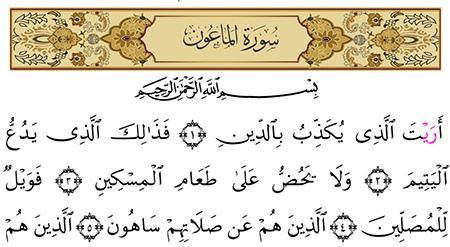 سُورَةُ المَاعُونِ
بِسْمِ اللَّهِ الرَّحْمَٰنِ الرَّحِيمِ
أَرَيْتَ الَّذِي يُكَذِّبُ بِالدِّينِ ﴿١﴾ فَذَٰلِكَ الَّذِي يَدُعُّ
الْيَتِيمَ ﴿٢﴾ وَلَا يَحُضُّ عَلَىٰ طَعَامِ الْمِسْكِينِ ﴿٣﴾ فَوَيْلٌ
لِّلْمُصَلِّينَ ﴿٤﴾ الَّذِينَ هُمْ عَن صَلَاتِهِمْ سَاهُونَ ﴿٥﴾ الَّذِينَ هُمْ